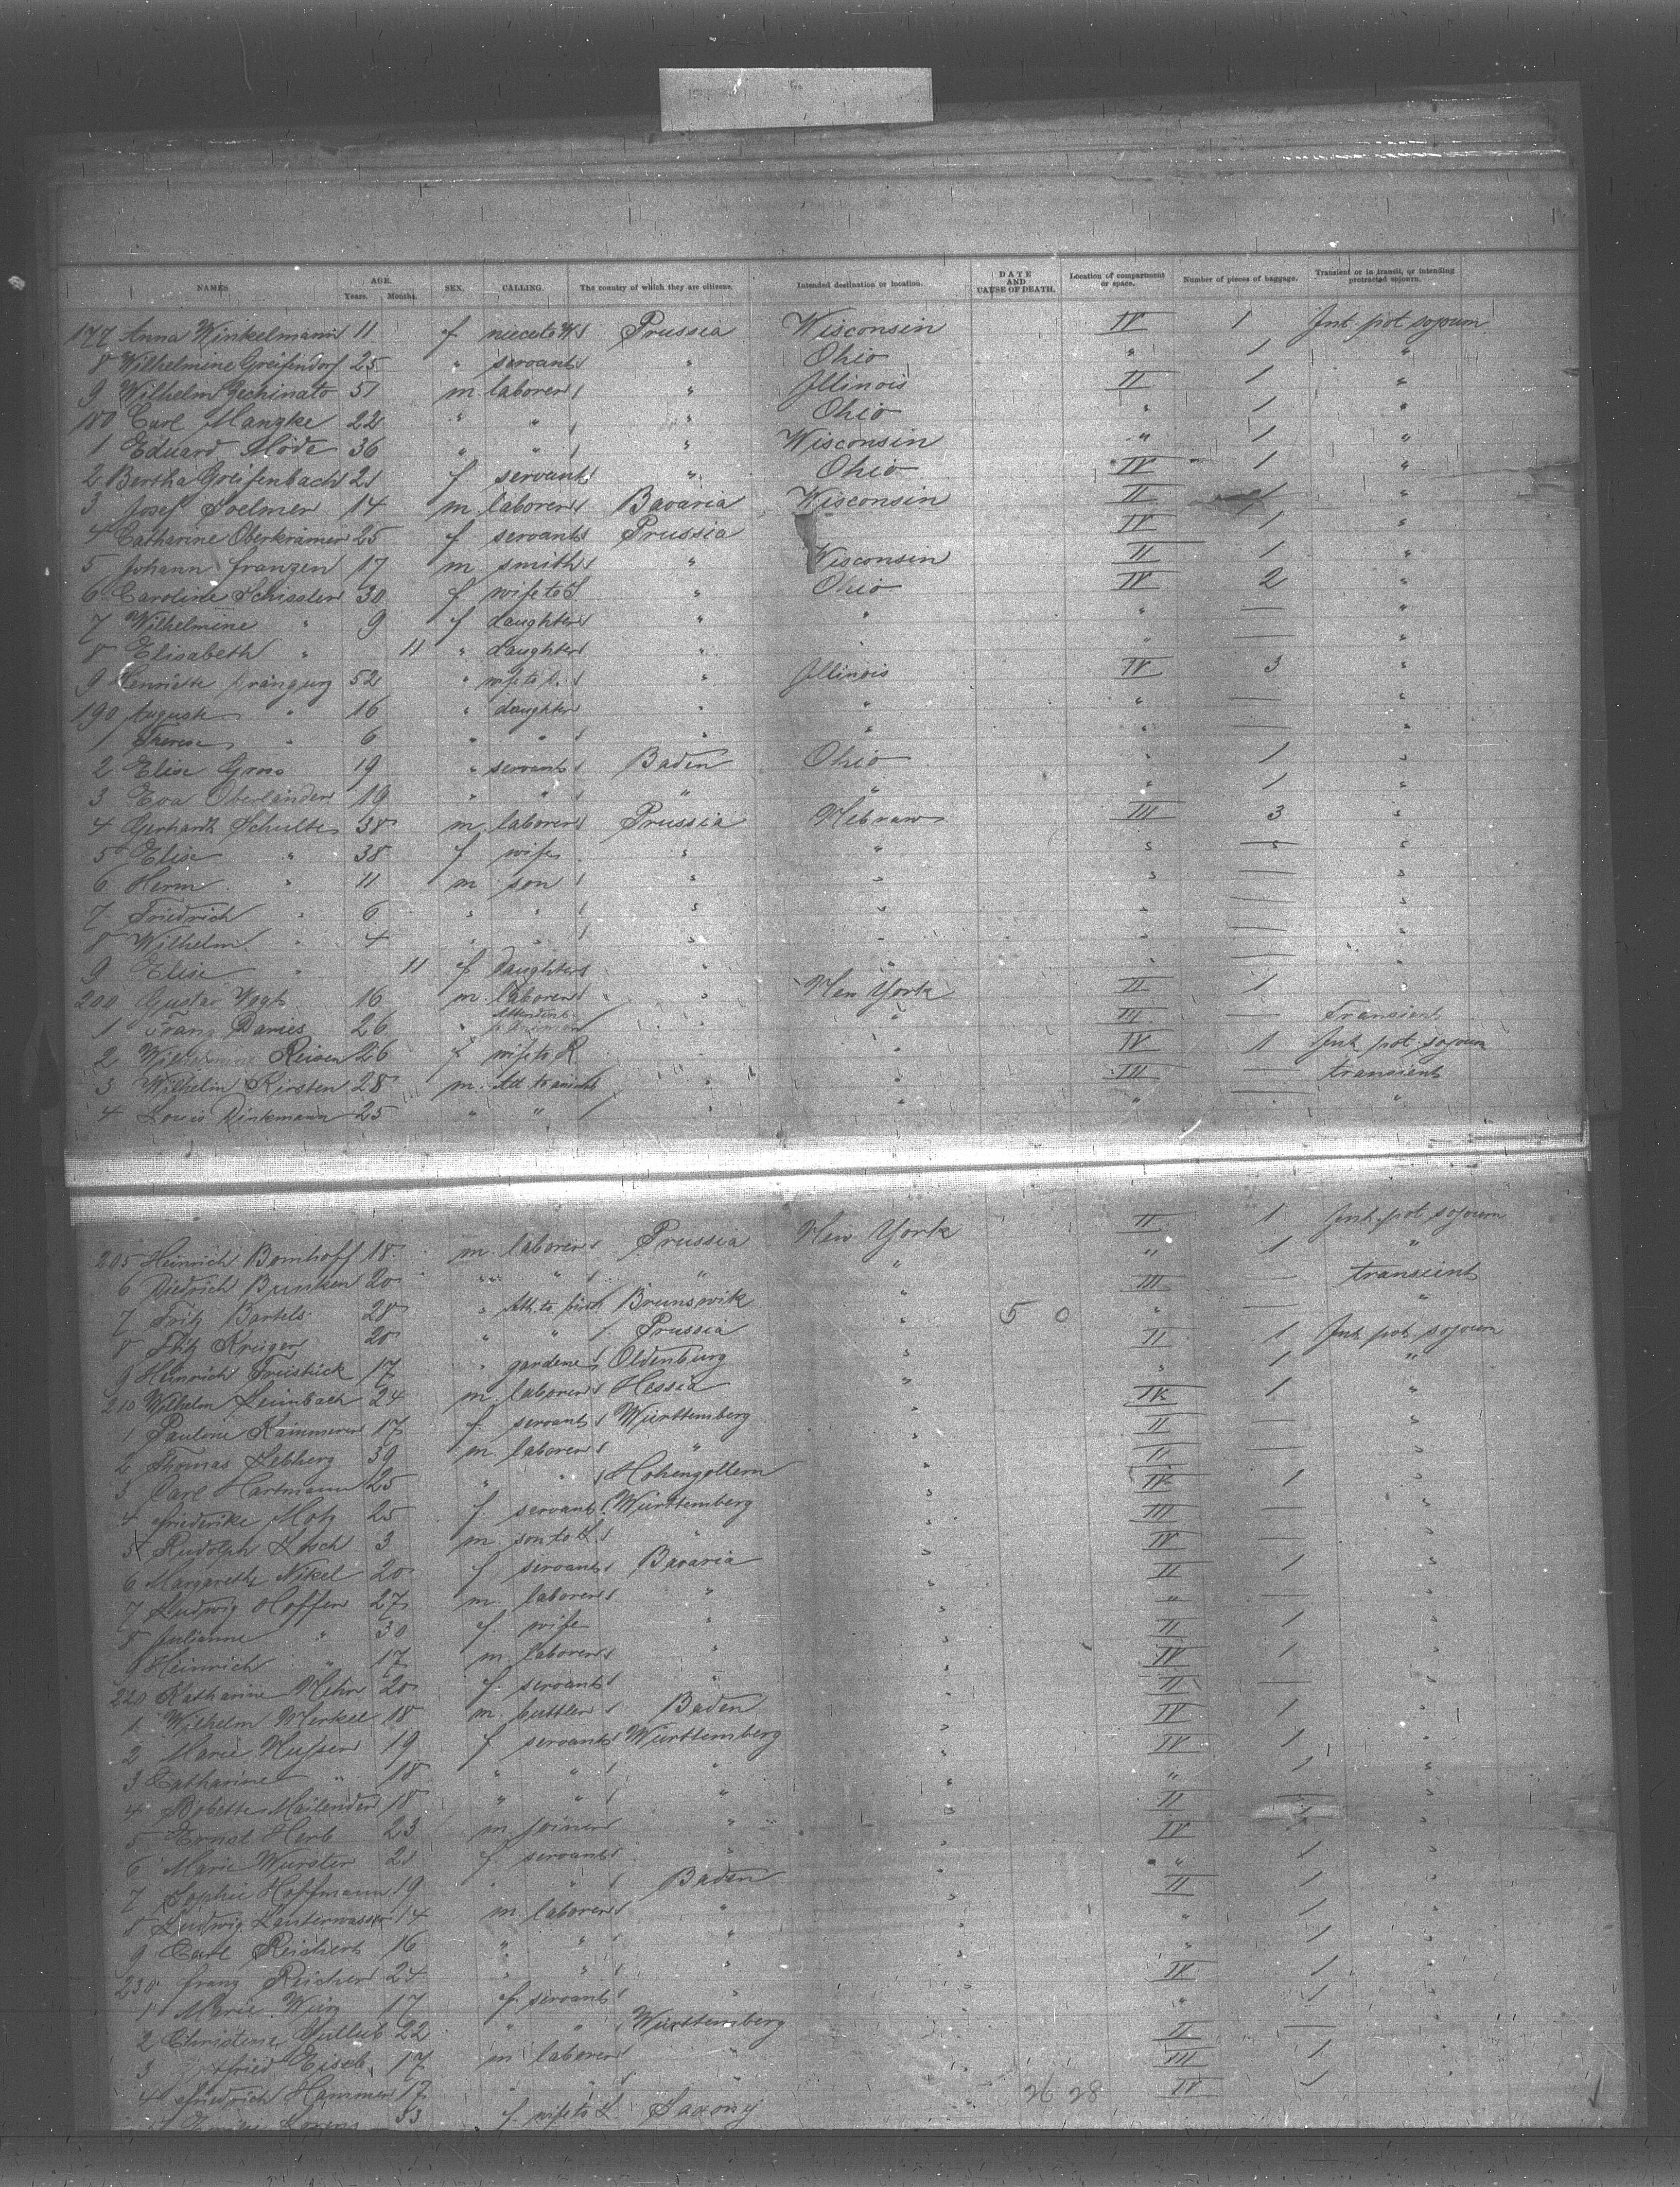 NAMES. AGE. Years. Months. SEX. CALLING. The country of which they are citizens. Intended destination or location. DATE AND CAUSE OF DEATH. Location of compartment or space. Number of pieces of baggage. Transient or in transit, or intending protracted sojourn.
177 Anna Winkelmann 11 f niece to W. Prussia Wisconsin IV 1 Int pot sojourn
8 Wilhelmine Greifendorf 25 " servant " Ohio " 1 "
9 Wilhelm Gechinato 51 m laborer " Illinois II 1 "
180 Carl Mangke 22 " " " Ohio " 1 "
1 Eduard Mode 36 " " " Wisconsin " 1 "
2 Bertha Greifenbach 21 f servant " Ohio IV 1 "
3 Josef Soelmer 14 m laborer Bavaria Wisconsin II 1 "
4 Catharine Oberkramer 25 f servant Prussia IV 1 "
5 Johann Franzen 17 m smith " Wisconsin II 1 "
6 Caroline Schissler 30 f wife to S " Ohio IV 2 "
7 Wilhelmine " 9 f daughter " " " — "
8 Elisabeth " 11 " daughter " " " — "
9 Henriette 52 " wife to " Illinois IV 3 "
190 Auguste " 16 " daughter " " " — "
1 Therese " 6 " " " " " — "
2 Elise Gross 19 " servant Baden Ohio " 1 "
3 Eva Oberländer 19 " " " " " 1 "
4 Gerhard Schulte 38 m laborer Prussia III 3 "
5 Elise " 38 f wife " " " — "
6 Herm " 11 m son " " " — "
7 Friedrich " 6 " " " " " — "
8 Wilhelm " 4 " " " " " — "
9 Elise " 11 f daughter " " " — "
200 Gustav Vogt 16 m laborer " New York II 1 "
1 Franz Daries 26 " Attendent " " III — Transient
2 Wilhelmine Reisen 26 f wife to R " " IV 1 Int pot sojourn
3 Wilhelm Kirsten 28 m Att to " " III — transient
4 Louis Dinkmann 25 " " " " " — "
205 Heinrich Bomhoff 18 m laborer Prussia New York II 1 Int pot sojourn
6 Diedrich Bunken 20 " " " " " 1 "
7 Fritz Bartels 28 " Att. to Brunswik " III — transient
8 Fritz Kruger 20 " " Prussia " 5 0 " — "
9 Heinrich Freistück 17 " gardener Oldenburg " II 1 Int pot sojourn
210 Wilhelm Leimbach 24 m laborer Hessia " " 1 "
1 Pauline Kammerer 17 f servant Württemberg " IV 1 "
2 Thomas Lebherz 39 m laborer " " II — "
3 Carl Hartmann 25 " " Hohenzollern " II — "
4 Friederike Motz 25 f servant Württemberg " IV 1 "
5 Rudolph Losch 3 m son to L " " III — "
6 Margarethe Nikel 20 f servant Bavaria " IV — "
7 Ludwig Hoffer 27 m laborer " " II 1 "
8 Julianne " 30 f wife " " " — "
9 Heinrich " 17 m laborer " " II 1 "
220 Katharine Mehr 20 f servant " " IV 1 "
1 Wilhelm Merkel 18 m buttler Baden " II — "
2 Marie Husser 19 f servant Württemberg " IV 1 "
3 Catharine " 18 " " " " IV 1 "
4 Babette Mailender 18 " " " " " 1 "
5 Ernst Herb 23 m joiner " " II — "
6 Marie Wurster 21 f servant " " IV 1 "
7 Sophie Hoffmann 19 " " Baden " " 1 "
8 Ludwig Lauterwasser 14 m laborer " " II 1 "
9 Carl Reichert 16 " " " " " 1 "
230 Franz Reicher 24 " " " " " 1 "
1 Marie Wurz 17 f servant " " IV 1 "
2 Christine Gutlub 22 " " Württemberg " " 1 "
3 Eisele 17 m laborer " II — "
4 Friedrich Hammer 17 " " " III 1
33 f wife to L Saxony 26 28 IV